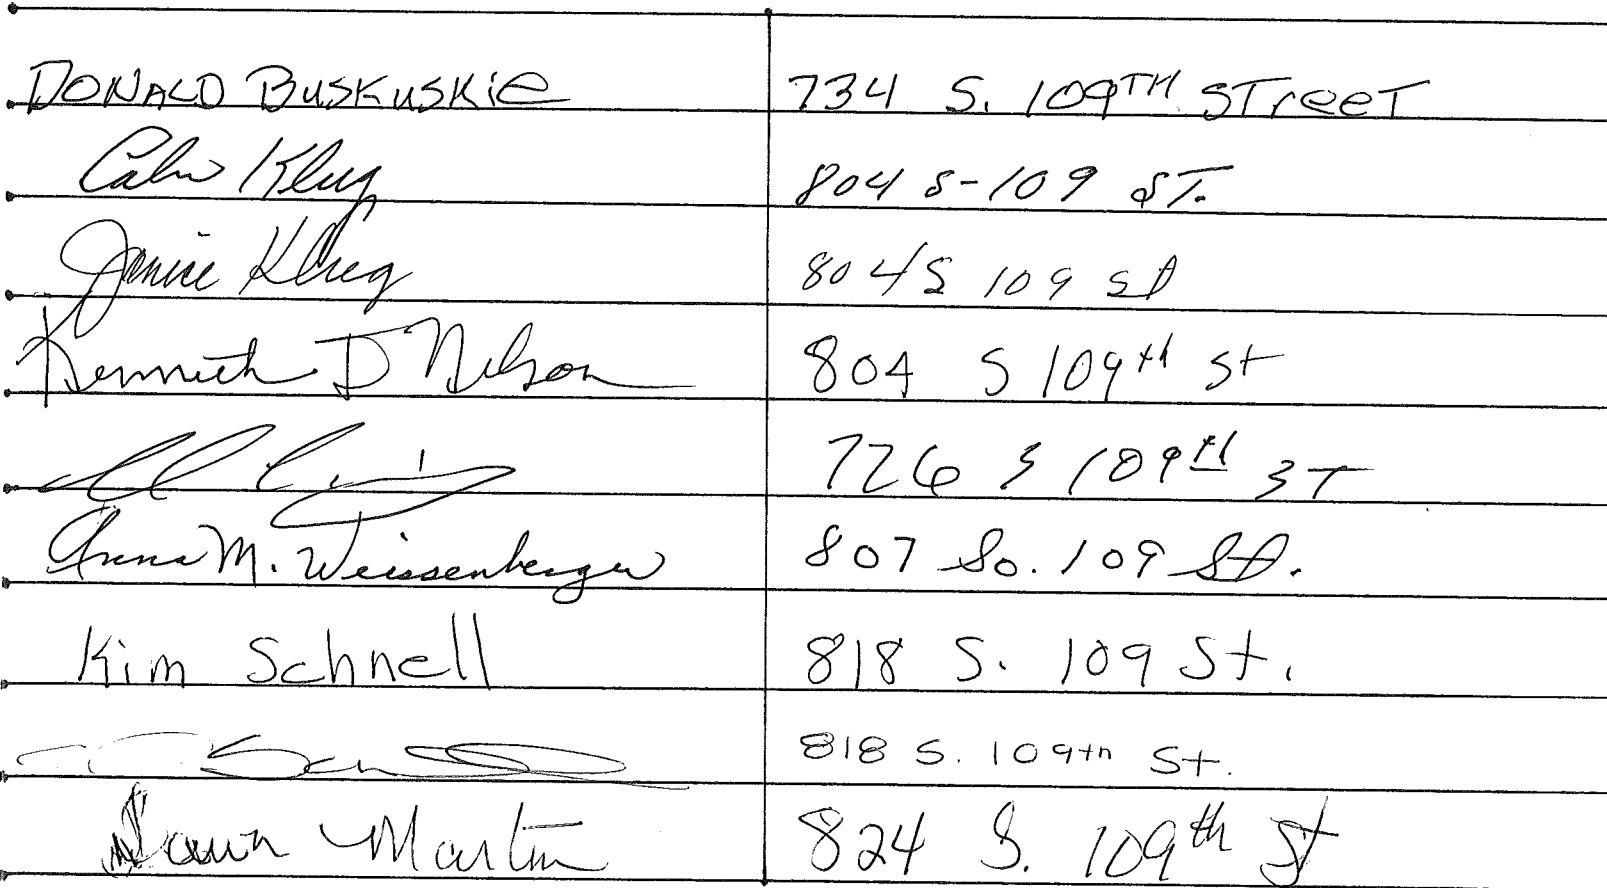 DONALD BUSKUSKIE 734 S. 109TH STreeT
Calvin Klug 804 S-109 ST.
Janice Klug 804 S 109 St
Kenneth D Nelson 804 S 109th St
726 S 109th ST
Anna M. Weissenberger 807 So. 109 St.
Kim Schnell 818 S. 109 St.
818 S. 109th St.
Dawn Martin 824 S. 109th St